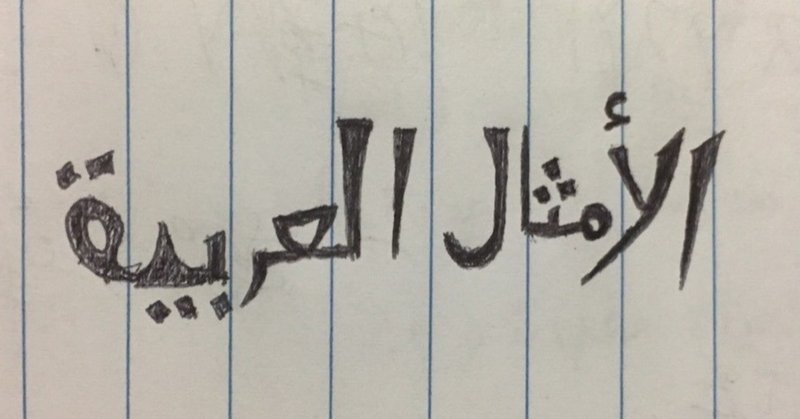 الأمثال العربية